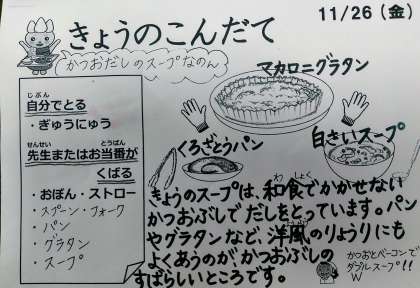 きょうのこんだて
11/26（金）
かつおだしのスープなのん
マカロニグラタン
自分でとる
・ぎゅうにゅう
先生またはお当番が
くばる
・おぼん・ストロー
・スプーン・フォーク
・パン
・グラタン
・スープ
くろざとうパン
白さいスープ
きょうのスープは、和食でかかせない
かつおぶしでだしをとっています。パン
やグラタンなど、洋風のりょうりにも
よくあうのがかつおぶしの
すばらしいところです。
かつおとベーコンで
ダブルスープ!!
W